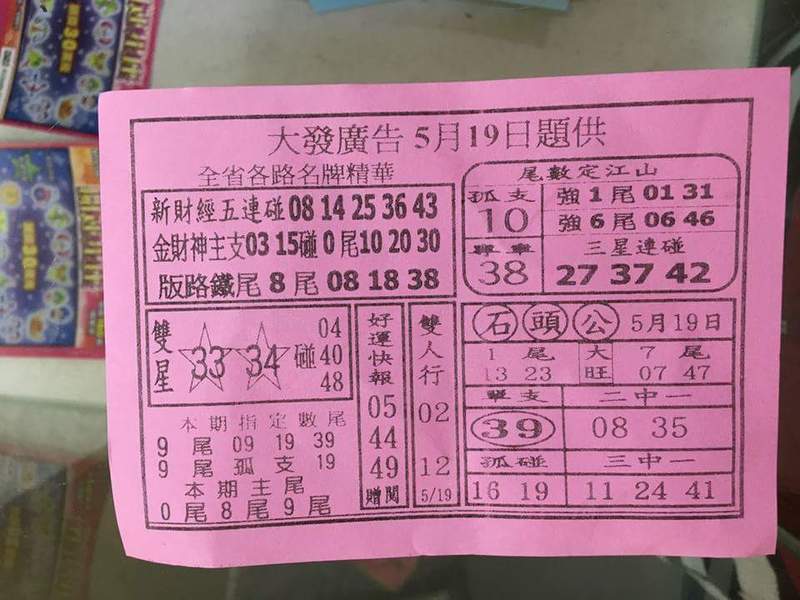 大發廣告 5月19日題供
全省各路名牌精華
新財經五連碰 08 14 25 36 43
金財神主支 03 15 碰 0 尾 10 20 30
版路鐵尾 8 尾 08 18 38
尾數定江山
孤支
10
強 1 尾 01 31
強 6 尾 06 46
38
三星連碰
27 37 42
雙星
33 34 碰
04
40
48
本期指定數尾
9 尾 09 19 39
9 尾 孤支 19
本期主尾
0 尾 8 尾 9 尾
好運快報
05
44
49
贈閱
雙人行
02
12
5/19
石頭公 5月19日
1 尾
13 23
大旺
7 尾
07 47
單支
39
二中一
08 35
孤碰
16 19
三中一
11 24 41